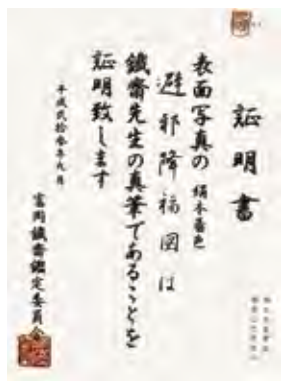 証明書
表面写真の 絹本着色
避邪降福図は
鐵齋先生の真筆であることを
証明致します
平成弐拾参年九月
富岡鐵齋鑑定委員会